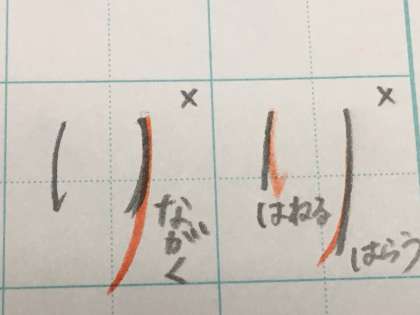 ×
り
ながく
×
り
はねる
はらう